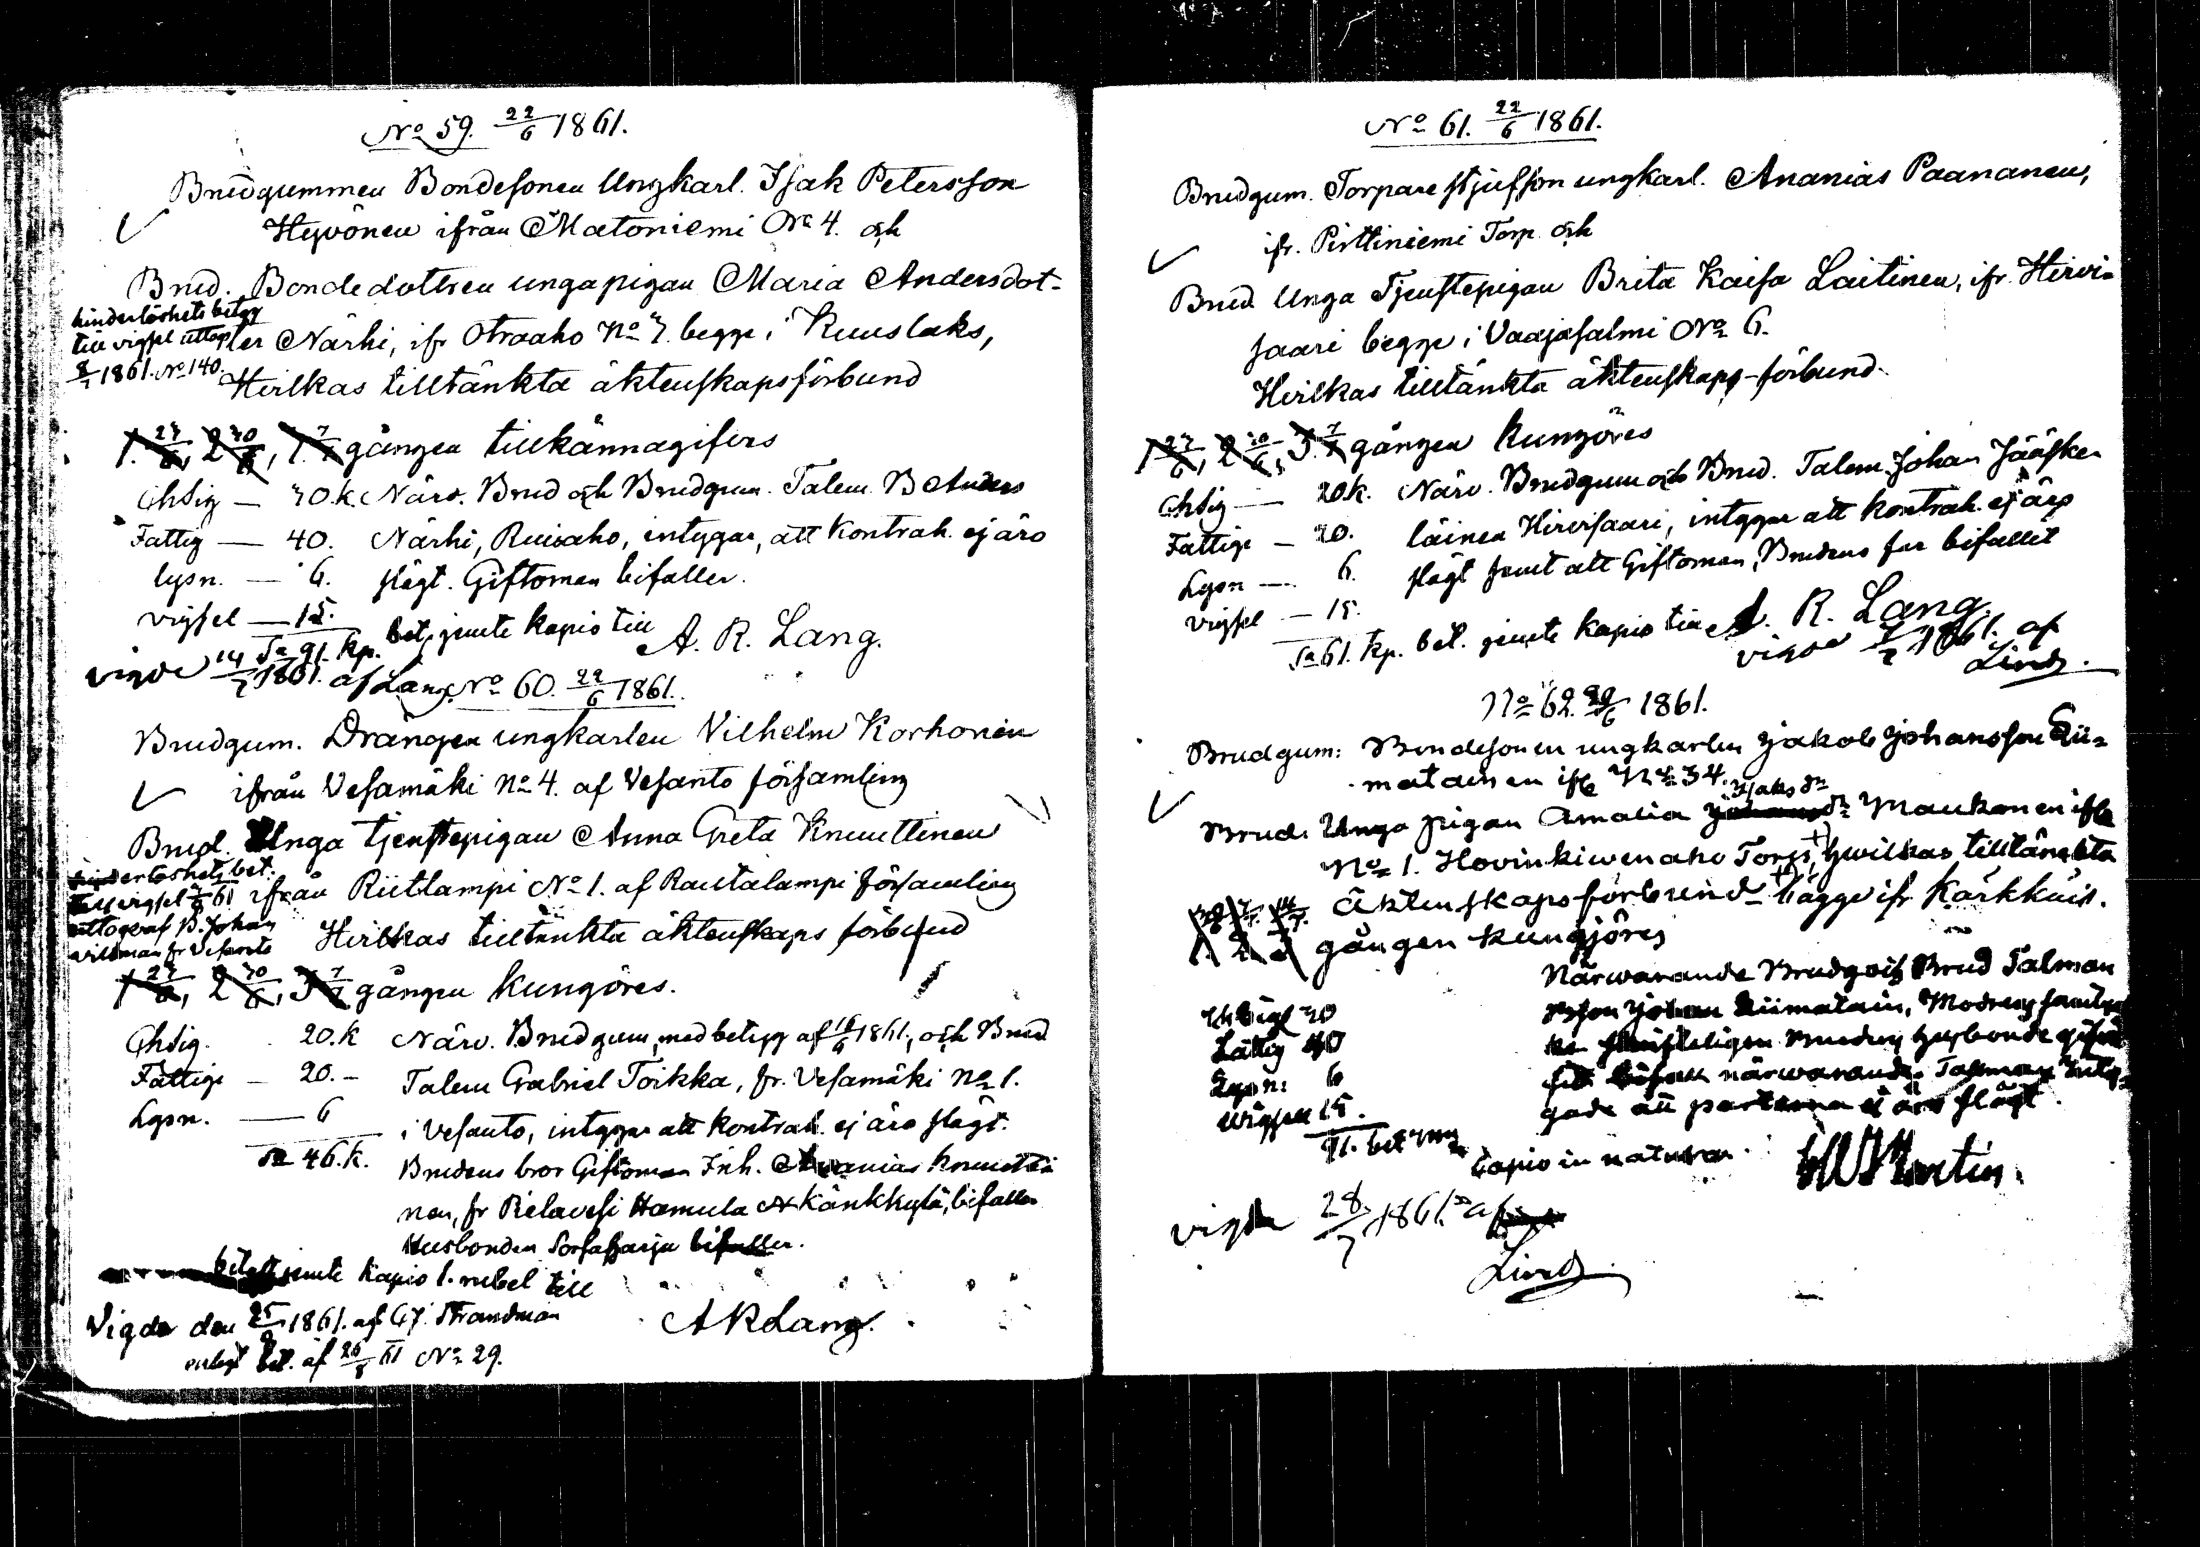 No 59. 22/6 1861.
Brudgummen Bondesonen Ungkarl. Isak Petersson
Hyvönen ifrån Matoniemi No 4. och
Brud. Bondedottren unga pigan Maria Andersdot-
hinderlöshets betyg
till vigsel uttog
8/7 1861. No 140.
ter Närhi, ifr Otraaho No 7. begge i Kuuslaks,
Hvilkas tilltänkta äktenskapsförbund
1. 23/6, 2 30/6, 1. 7/7 gången tillkännagifves
Ehstg — 30.k. Närv. Brud och Brudgum. Talem. B Anders
Fattig — 40. Närhi, Ruisaho, intygar, att kontrah. ej äro
lysn. — 6. slägt. Giftoman bifaller.
vigsel — 15.
Sa 91. kp. bet. jemte kapio till A. R. Lang.
vigde 14/7 1861. af Lang.
No 60. 22/6 1861.
Brudgum. Drängen ungkarlen Vilhelm Korhonen
ifrån Vesamäki No 4. af Vesanto församling
Brud. Unga tjenstepigan Anna Greta Knuuttinen
hinderlöshets bet.
till vigsel 61
uttog af B. Johan
Villman fr Vesanto
ifrån Riitlampi No 1. af Rautalampi församling
Hvilkas tilltänkta äktenskaps förbund
1 23/6, 2 30/6, 3 7/7 gången kungöres.
Ehstg. 20.k Närv. Brudgum, med betyg af 16/6 1861., och Brud
Fattige — 20.- Talem Gabriel Toikka, fr. Vesamäki No 1.
Lysn. — 6 i Vesanto, intygar att kontrah. ej äro slägt.
Sa 46.k. Brudens bror Giftoman Inh. Ananias Knuutti
nen, fr Pielavesi Hamula Känkkylä, bifaller
Husbonden bifaller.
betalt jemte kapio 1. rubel till
Vigde den 25/8 1861. af G. Strandman
enligt bet. af 26/8 61 No 29.
A R Lang.
No 61. 22/6 1861.
Brudgum. Torpare stjufson ungkarl. Ananias Paananen,
ifr. Pirttiniemi Torp och
Brud Unga Tjenstepigan Brita Kaisa Laitinen, ifr. Hirvi-
saari begge i Vaajasalmi No 6.
Hvilkas tilltänkta äktenskaps-förbund
1 23/6, 2 30/6, 3 7/7 gången kungöres
Ehstg — 20k. Närv. Brudgum och Brud. Talem. Johan Jääske
Fattige — 20. läinen Hirvisaari, intygar att kontrah. ej äro
Lysn — 6. slägt samt att Giftoman, Brudens far bifallit
vigsel — 15.
Sa 61. kp. bet. jemte kapio till A. R. Lang.
vigde 1861. af
Lind.
No 62. 22/6 1861.
Brudgum: Bondesonen ungkarlen Jakob Johansson Lii-
matainen ifr No 34.
Isaks dr
Brud: Unga pigan Amalia Maukonen ifr
No 1. Hovinkiwenaho Torp, hwilkas tilltänkta
äktenskapsförbund bägge ifr Kärkkäis.
1 2 3 gången kungjöres
Närwarande Brudg och Brud Talman
Bson Johan Liimatain,
Ehstgf 30
Fattig 40 Brudens husbonde
Lysn: 6 närwarande. Talman intyg-
Wigseln 15. gade att parterna ej äro slägt.
91. bet
kapio in natura.
Vigde 28/7 1861 af
Lind